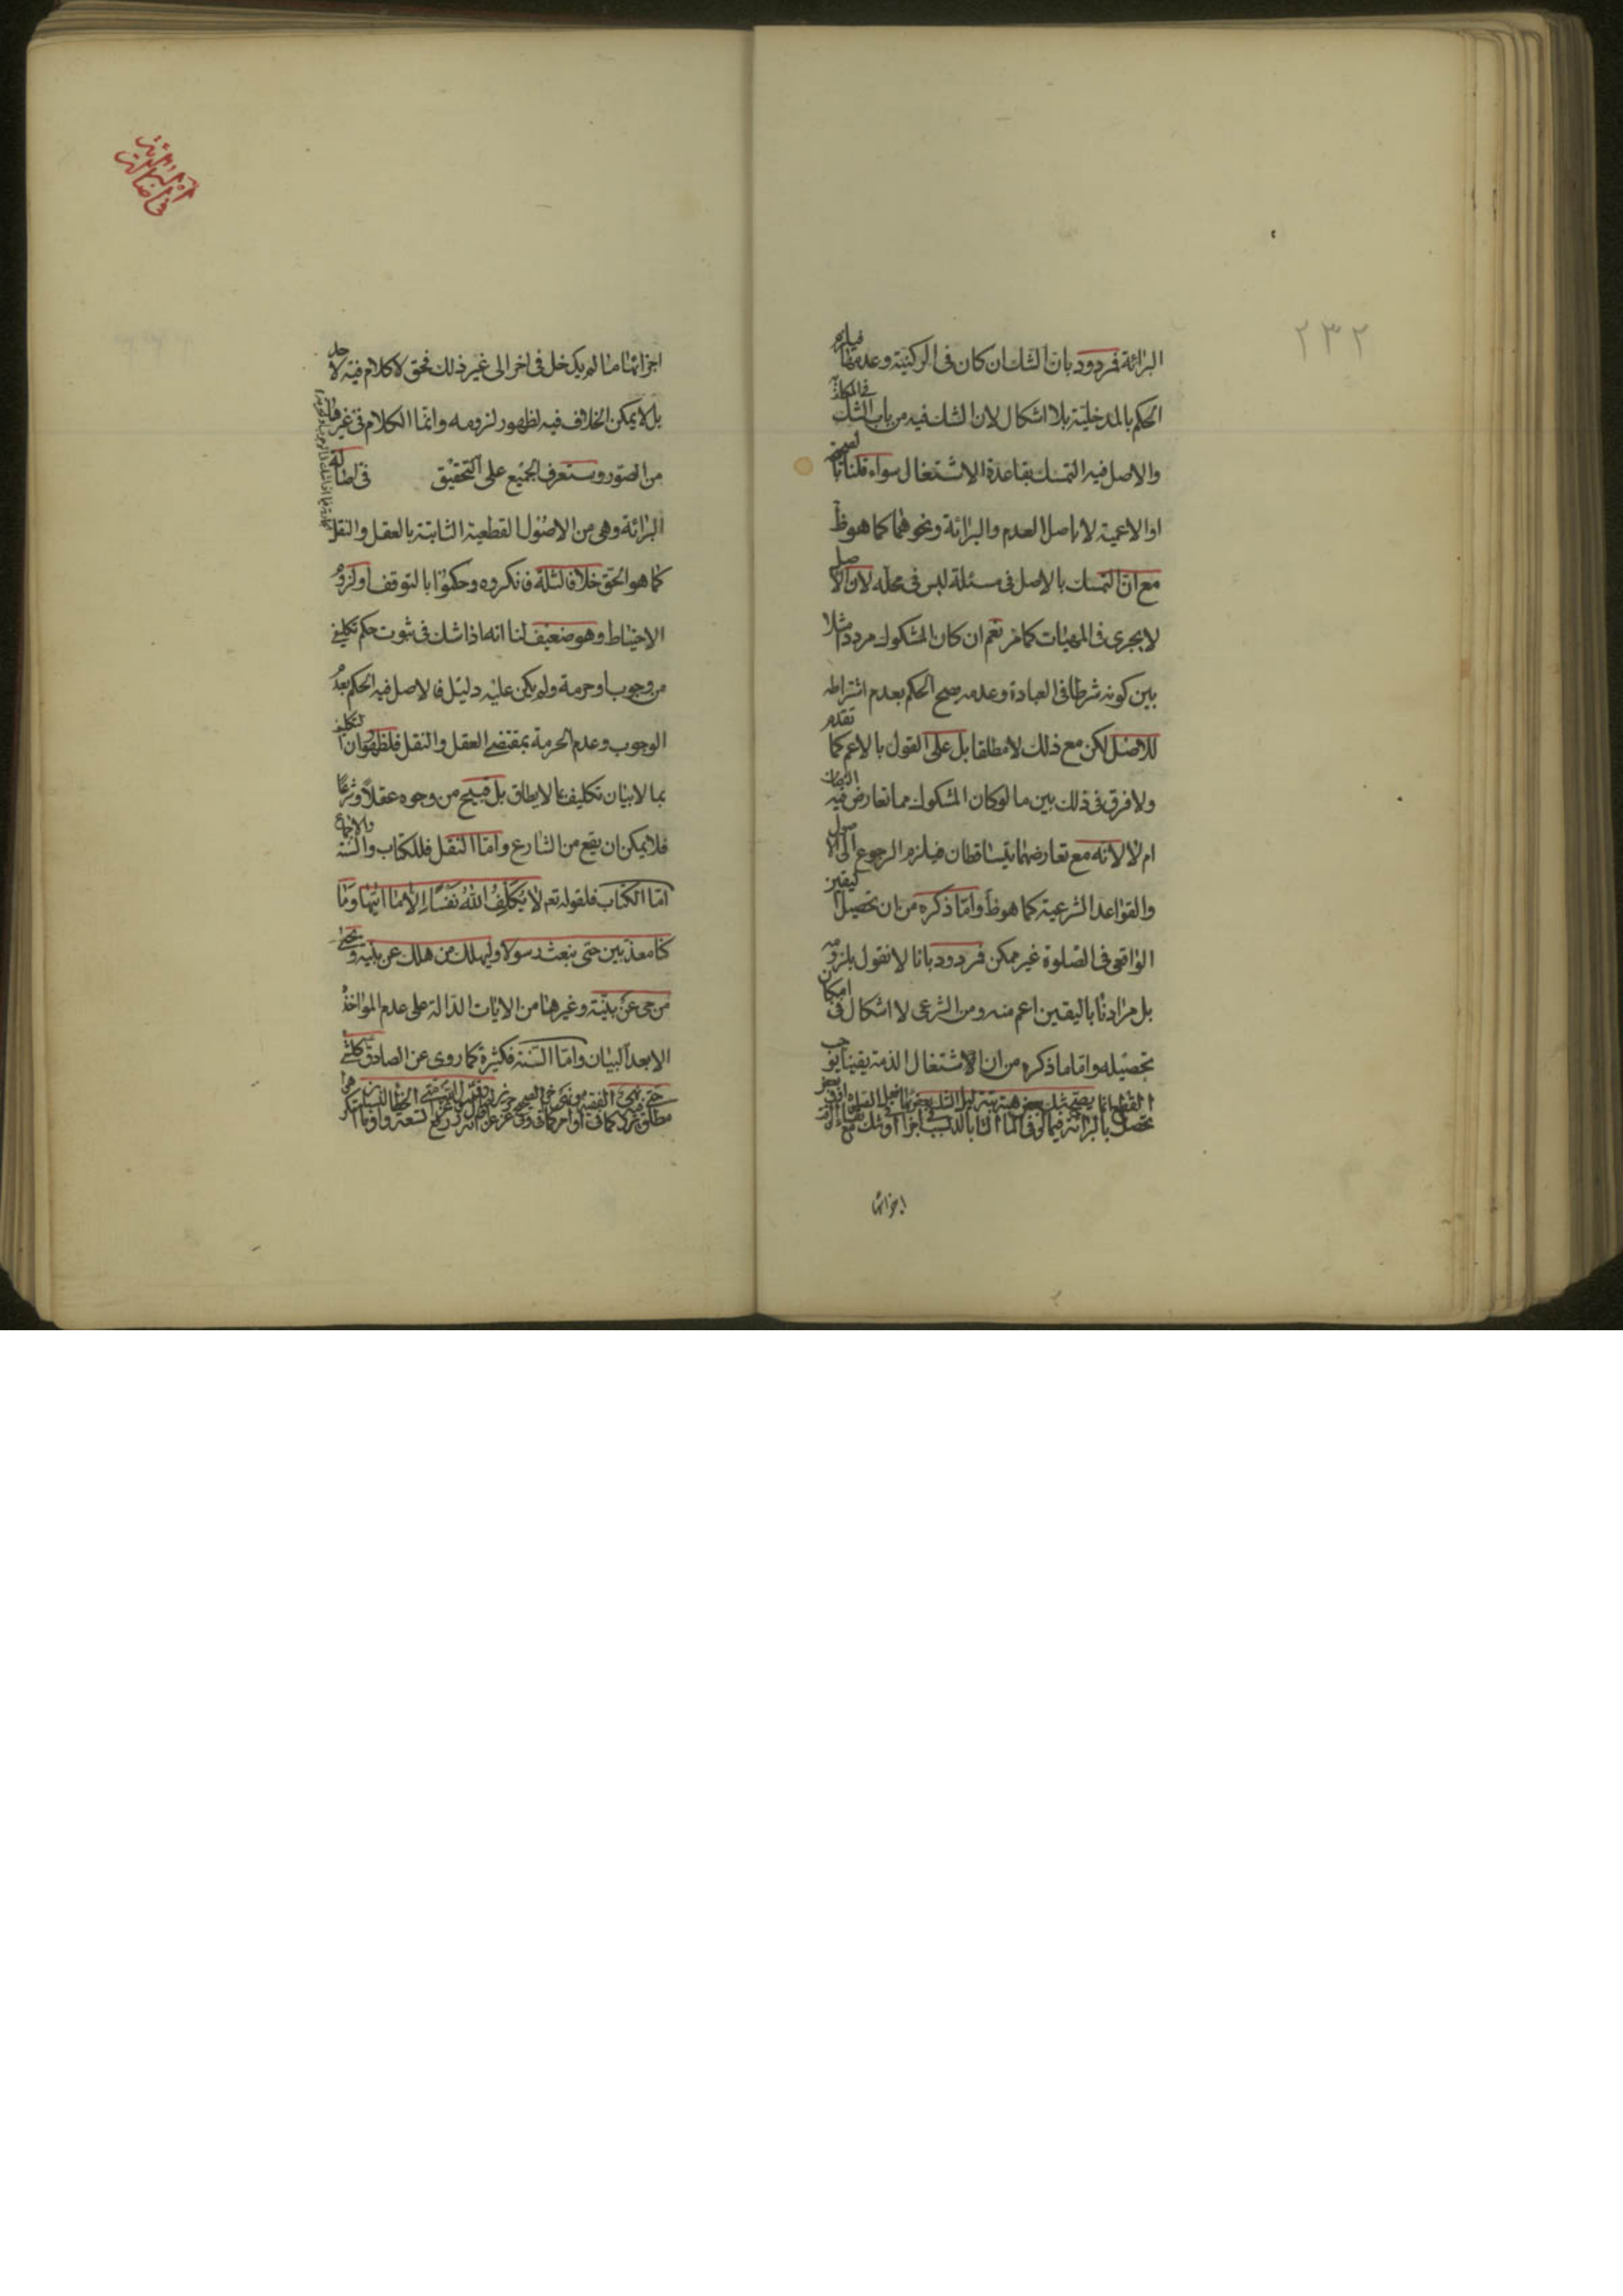 ٢٣٢
البرائة فمردود بان الشك ان كان في الركنية وعدمها فيلزم
الحكم بالمدخلية بلا اشكال لان الشك فيه من باب الشك في المكلف
والاصل فيه التمسك بقاعدة الاشتغال سواء قلنا بالصحيحية
او الاعمية لا باصل العدم والبرائة ونحوهما كما هو ظ
مع ان التمسك بالاصل في مسئلة ليس في محله لان الاصل
لا يجرى في المهيات كما مر نعم ان كان المشكوك مرددا مثلا
بين كونه شرطا في العبادة وعدمه صح الحكم بعدم اشتراطه
للاصل لكن مع ذلك لا مطلقا بل على القول بالاعم كما تقدم
ولا فرق في ذلك بين ما لو كان المشكوك مما تعارض فيه النصان
ام لا لانه مع تعارضهما يتساقطان فيلزم الرجوع الى الاصول
والقواعد الشرعية كما هو ظ واما ذكره من ان تحصيل اليقين
الواقعى في الصلوة غير ممكن فمردود بانا لا نقول بلزومه
بل مرادنا باليقين اعم منه ومن الشرعى لا اشكال في امكان
تحصيله واما ما ذكره من ان الاشتغال الذمة يقينا يوجب
اجزائها
في اصالة البرائة
اجزائها ما لم يدخل في اخر الى غير ذلك فحق لا كلام فيه لاحد
بل لا يمكن الخلاف فيه لظهور لزومه وانما الكلام في غير
من الصور وستعرف الجميع على التحقيق في اصالة
البرائة وهى من الاصول القطعية الثابتة بالعقل والنقل
كما هو الحق خلافا لثلة فانكروه وحكموا بالتوقف او لزوم
الاحتياط وهو ضعيف لنا انه اذا شك في ثبوت حكم تكليفى
من وجوب او حرمة ولم يكن عليه دليل فالاصل فيه الحكم بعدم
الوجوب وعدم الحرمة بمقتضى العقل والنقل فلظهور ان التكليف
بما لا بيان تكليف بما لا يطاق بل قبيح من وجوه عقلا وشرعا
فلا يمكن ان يقع من الشارع واما النقل فللكتاب والسنة والاجماع
اما الكتاب فلقوله تعم لا يكلف الله نفسا الا ما اتيها وما
كنا معذبين حتى نبعث رسولا وليهلك من هلك عن بينة ويحيى
من حى عن بينة وغيرها من الايات الدالة على عدم المواخذة
الا بعد البيان واما السنة فكثيرة كما روى عن الصادق كلشئ
مطلق حتى يرد فيه نهى